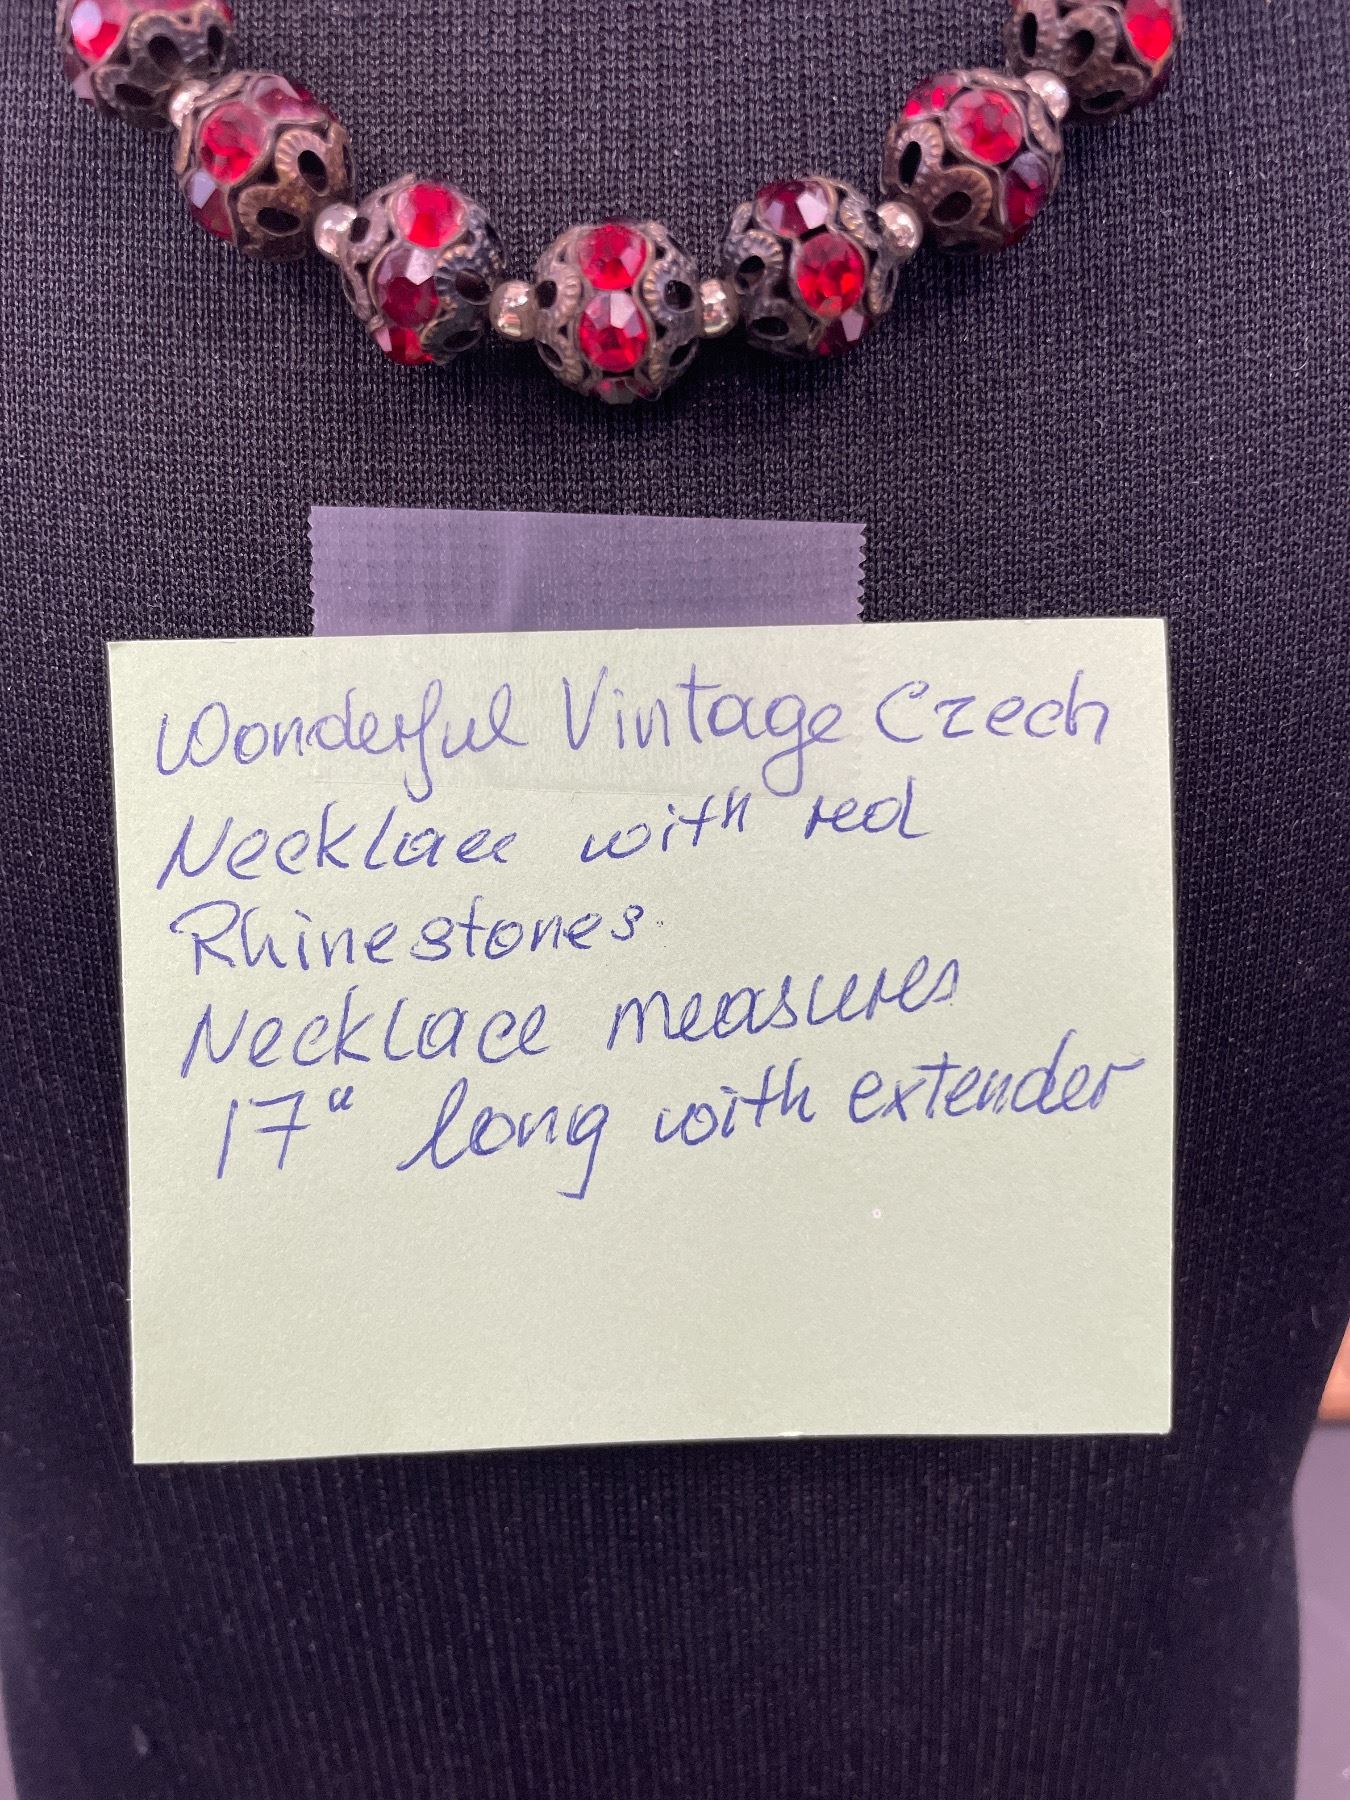 Wonderful Vintage Czech
Necklace with red
Rhinestones.
Necklace measures
17" long with extender